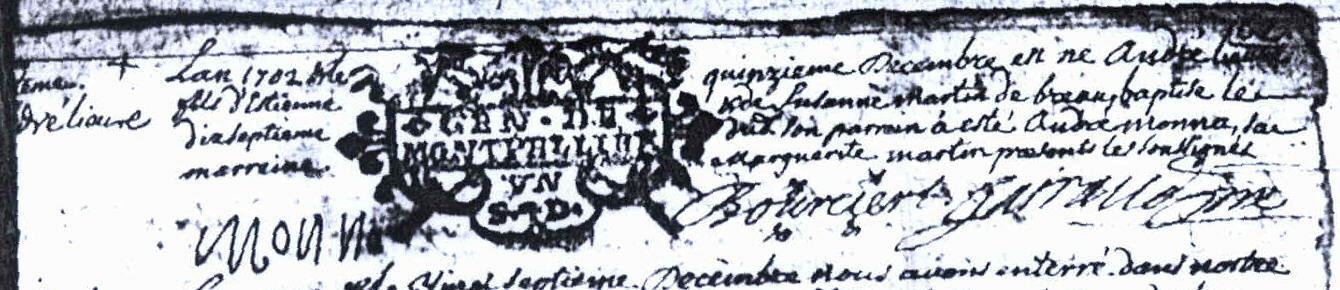 Lan 1702 & le quinzieme Decembre est ne André
fils d'Estienne & de Susanne martin de baptise le
dixseptieme dud. son parrain à esté André monna, sa
marraine Marguerite martin presents les soussignés
GEN · DE
MONTPELLIER
UN
S · D ·
Monna Bourcier
vingt septieme Decembre nous avons enterré dans nostre